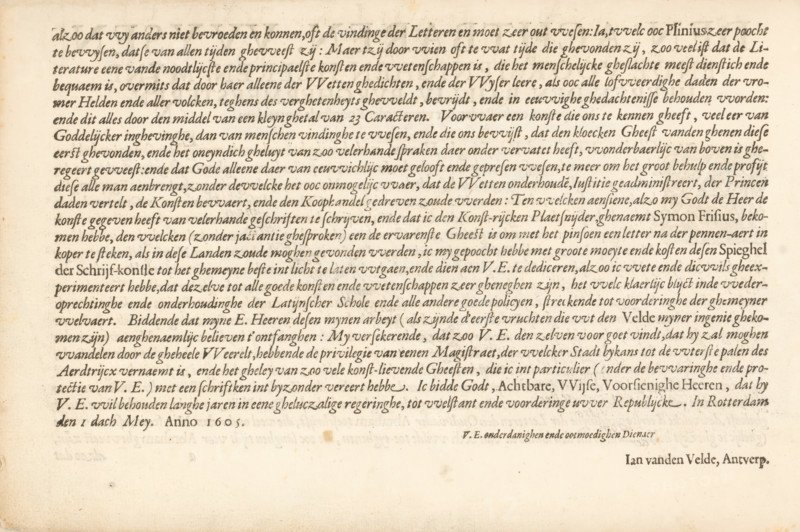 alzoo dat vvy anders niet bevroeden en konnen, oft de vindinge der Letteren en moet zeer out vvesen: Ia, tvvelc ooc Plinius zeer poocht
te bevvysen, datse van allen tijden ghevveest zij: Maer tzij door vvien oft te vvat tijde die ghevonden zij, zoo veel ist dat de Li-
terature eene vande noodtlijcste ende principaelste konsten ende vvetenschappen is, die het menschelijcke gheslachte meest dienstich ende
bequaem is, overmits dat door haer alleene der VVetten ghedichten, ende der VVyser leere, als ooc alle lofvveerdighe daden der vro-
mer Helden ende aller volcken, teghens des verghetenheyts ghevveldt, bevrijdt, ende in eeuvvighe ghedachtenisse behouden vvorden:
ende dit alles door den middel van een kleyn ghetal van 23 Caracteren. Voorvvaer een konste die ons te kennen gheeft, veel eer van
Goddelijcker inghevinghe, dan van menschen vindinghe te vvesen, ende die ons bevvijst, dat den kloecken Gheest vanden ghenen diese
eerst ghevonden, ende het oneyndich gheluyt van zoo velerhande spraken daer onder vervatet heeft, vvonderbaerlijc van boven is ghe-
regeert gevveest: ende dat Gode alleene daer van eeuvvichlijc moet gelooft ende gepresen vvesen, te meer om het groot behulp ende profijt
diese alle man aenbrengt, zonder dewelcke het ooc onmogelijc vvaer, dat de VVetten onderhoudē, Iustitie geadministreert, der Princen
daden vertelt, de Konsten bevvaert, ende den Koophandel gedreven zoude vverden: Ten vvelcken aensiene, alzo my Godt de Heer de
konste gegeven heeft van velerhande geschriften te schrijven, ende dat ic den Konst-rijcken Plaetsnijder, ghenaemt Symon Frisius, beko-
men hebbe, den vvelcken (zonder jactantie ghesproken) een de ervarenste Gheest is om met het pinsoen een letter na der pennen-aert in
koper te steken, als in dese Landen zoude moghen gevonden vverden, ic my gepoocht hebbe met groote moeyte ende kosten desen Spieghel
der Schrijf-konste tot het ghemeyne beste int licht te laten vvtgaen, ende dien aen V. E. te dediceren, alzoo ic vvete ende dicvvils gheex-
perimenteert hebbe, dat dezelve tot alle goede konsten ende vvetenschappen zeer gheneghen zijn, het vvelc klaerlijc blijct inde vveder-
oprechtinghe ende onderhoudinghe der Latijnscher Schole ende alle andere goede policyen, streckende tot voorderinghe der ghemeyner
vvelvaert. Biddende dat myne E. Heeren desen mynen arbeyt (als zijnde d'eerste vruchten die vvt den Velde myner ingenie ghekо-
men zijn) aenghenaemlijc believen t'ontfanghen: My versekerende, dat zoo V. E. den zelven voor goet vindt, dat hy zal moghen
vvandelen door de gheheele VVeerelt, hebbende de privilegie van eenen Magistraet, der vvelcker Stadt bykans tot de vvterste palen des
Aerdtrijcx vernaemt is, ende het gheley van zoo vele konst-lievende Gheesten, die ic int particulier (onder de bevvaringhe ende pro-
tectie van V. E.) met een schrift int byzonder vereert hebbe. Ic bidde Godt, Achtbare, VVijse, Voorsienighe Heeren, dat hy
V. E. vvil behouden langhe jaren in eene gheluczalige regeringhe, tot vvelstant ende voorderinge uvver Republijcke. In Rotterdam
den 1 dach Mey. Anno 1605.
V. E. onderdanighen ende ootmoedighen Dienaer
Ian vanden Velde, Antverp.